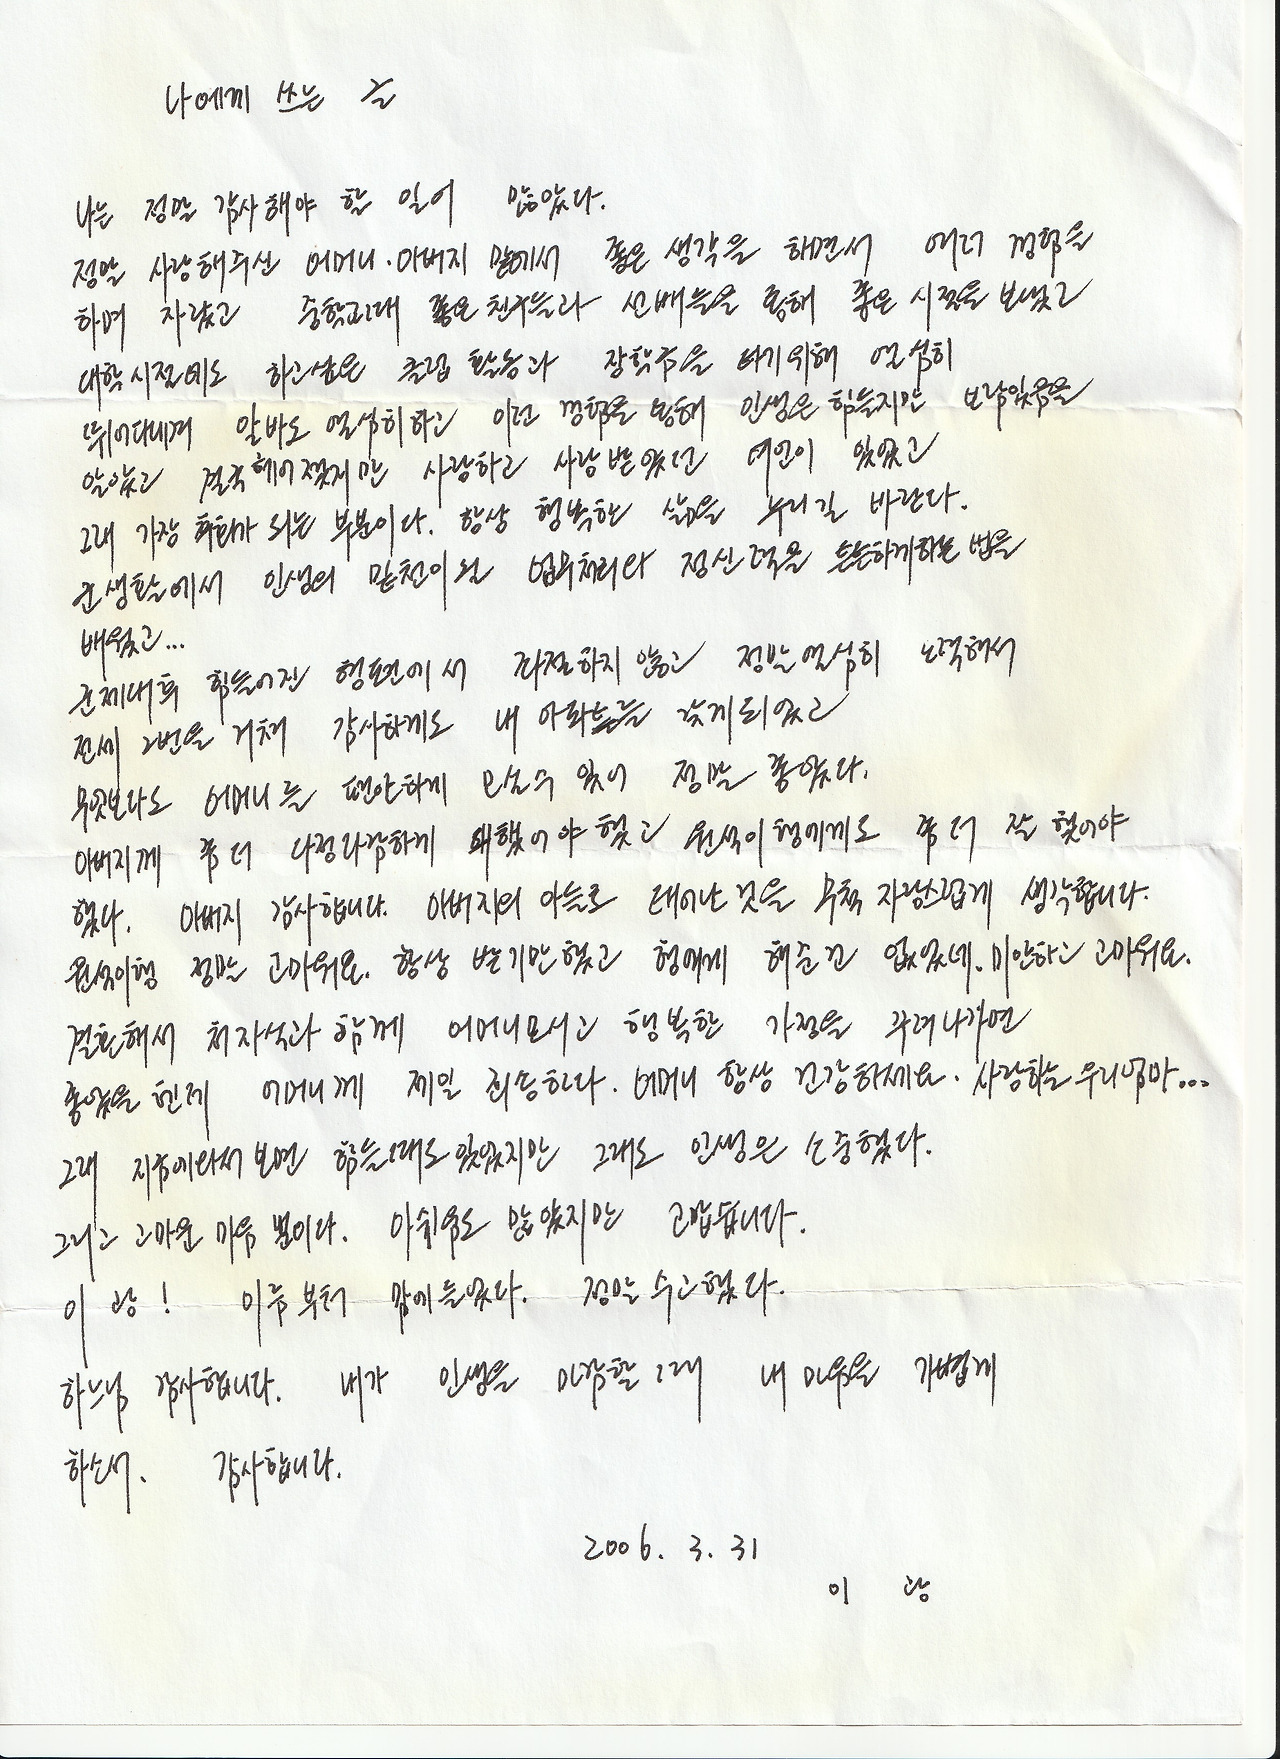 나에게 쓰는 글
나는 정말 감사해야 할 일이 많았다.
정말 사랑해주신 어머니·아버지 밑에서 좋은 생각을 하면서 여러 경험을
하며 자랐고 중학교때 좋은 친구들과 선배들을 통해 좋은 시절을 보냈고
대학시절에도 하고싶은 클럽 활동과 장학금을 타기위해 열심히
뛰어다니며 알바도 열심히하고 이런 경험을 통해 인생은 힘들지만 보람있음을
알았고 결국 헤어졌지만 사랑하고 사랑받았던 여인이 있었고
그래 가장 후회가 되는 부분이다. 항상 행복한 삶을 누리길 바란다.
군생활에서 인생의 밑천이된 업무처리와 정신력을 튼튼하게하는 법을
배웠고...
군제대후 힘들어진 형편에서 좌절하지 않고 정말 열심히 노력해서
전세 2번을 거쳐 감사하게도 내 아파트를 갖게되었고
무엇보다도 어머니를 편안하게 모실수 있어 정말 좋았다.
아버지께 좀 더 다정다감하게 대했어야 했고 원석이형에게도 좀 더 잘 했어야
했다. 아버지 감사합니다. 아버지의 아들로 태어난 것을 무척 자랑스럽게 생각합니다.
원석이형 정말 고마워요. 항상 받기만 했고 형에게 해준건 없었네. 미안하고 고마워요.
결혼해서 처자식과 함께 어머니모시고 행복한 가정을 꾸려나가면
좋았을 텐데 어머니께 제일 죄송하다. 어머니 항상 건강하세요. 사랑하는 우리엄마...
그래 지금에와서 보면 힘들때도 있었지만 그래도 인생은 소중했다.
그리고 고마운 마음 뿐이다. 아쉬움도 많았지만 고맙습니다.
이 광! 이름부터 맘에 들었다. 정말 수고했다.
하느님 감사합니다. 내가 인생을 마감할 때 내 마음을 가볍게
하소서. 감사합니다.
2006. 3. 31
이 광